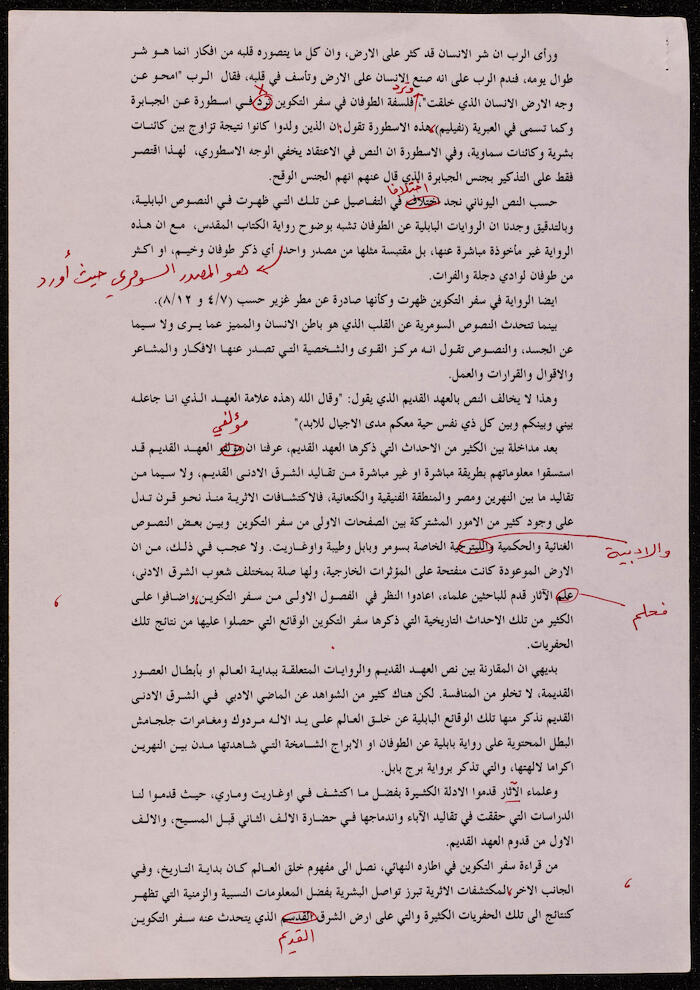 ورأى الرب ان شر الانسان قد كثر على الارض، وان كل ما يتصوره قلبه من افكار انما هو شر
طوال يومه، فندم الرب على انه صنع الانسان على الارض وتأسف في قلبه، فقال الرب "امحو عن
وترد
وجه الارض الانسان الذي خلقت"، فلسفة الطوفان في سفر التكوين ترد في اسطورة عن الجبابرة
وكما تسمى في العبرية (نفيليم) هذه الاسطورة تقول: ان الذين ولدوا كانوا نتيجة تزاوج بين كائنات
بشرية وكائنات سماوية، وفي الاسطورة ان النص في الاعتقاد يخفي الوجه الاسطوري، لهذا اقتصر
فقط على التذكير بجنس الجبابرة الذي قال عنهم انهم الجنس الوقح.
اختلافا
حسب النص اليوناني نجد اختلاف في التفاصيل عن تلك التي ظهرت في النصوص البابلية،
وبالتدقيق وجدنا ان الروايات البابلية عن الطوفان تشبه بوضوح رواية الكتاب المقدس، مع ان هذه
الرواية غير مأخوذة مباشرة عنها، بل مقتبسة مثلها من مصدر واحد، أي ذكر طوفان وخيم، او اكثر
هو المصدر السومري حيث أورد
من طوفان لوادي دجلة والفرات.
ايضا الرواية في سفر التكوين ظهرت وكأنها صادرة عن مطر غزير حسب (٤/٧ و ٨/١٢).
بينما تتحدث النصوص السومرية عن القلب الذي هو باطن الانسان والمميز عما يرى ولا سيما
عن الجسد، والنصوص تقول انه مركز القوى والشخصية التي تصدر عنها الافكار والمشاعر
والاقوال والقرارات والعمل.
وهذا لا يخالف النص بالعهد القديم الذي يقول: "وقال الله (هذه علامة العهد الذي انا جاعله
بيني وبينكم وبين كل ذي نفس حية معكم مدى الاجيال للابد)"
مؤلفي
بعد مداخلة بين الكثير من الاحداث التي ذكرها العهد القديم، عرفنا ان مؤلفو العهد القديم قد
استسقوا معلوماتهم بطريقة مباشرة او غير مباشرة من تقاليد الشرق الادنى القديم، ولا سيما من
تقاليد ما بين النهرين ومصر والمنطقة الفنيقية والكنعانية، فالاكتشافات الاثرية منذ نحو قرن تدل
على وجود كثير من الامور المشتركة بين الصفحات الاولى من سفر التكوين وبين بعض النصوص
الغنائية والحكمية والليترجية الخاصة بسومر وبابل وطيبة واوغاريت. ولا عجب في ذلك، من ان
والادبية
الارض الموعودة كانت منفتحة على المؤثرات الخارجية، ولها صلة بمختلف شعوب الشرق الادنى،
علم الآثار قدم للباحثين علماء، اعادوا النظر في الفصول الاولى من سفر التكوين، واضافوا على
فعلم
الكثير من تلك الاحداث التاريخية التي ذكرها سفر التكوين الوقائع التي حصلوا عليها من نتائج تلك
الحفريات.
بديهي ان المقارنة بين نص العهد القديم والروايات المتعلقة ببداية العالم او بأبطال العصور
القديمة، لا تخلو من المنافسة. لكن هناك كثير من الشواهد عن الماضي الادبي في الشرق الادنى
القديم نذكر منها تلك الوقائع البابلية عن خلق العالم على يد الاله مردوك ومغامرات جلجامش
البطل المحتوية على رواية بابلية عن الطوفان او الابراج الشامخة التي شاهدتها مدن بين النهرين
اكراما لالهتها، والتي تذكر برواية برج بابل.
وعلماء الآثار قدموا الادلة الكثيرة بفضل ما اكتشف في اوغاريت وماري، حيث قدموا لنا
الدراسات التي حققت في تقاليد الآباء واندماجها في حضارة الالف الثاني قبل المسيح، والالف
الاول من قدوم العهد القديم.
من قراءة سفر التكوين في اطاره النهائي، نصل الى مفهوم خلق العالم كان بداية التاريخ، وفي
الجانب الاخر، المكتشفات الاثرية تبرز تواصل البشرية بفضل المعلومات النسبية والزمنية التي تظهر
كنتائج الى تلك الحفريات الكثيرة والتي على ارض الشرق القدسم الذي يتحدث عنه سفر التكوين
القديم